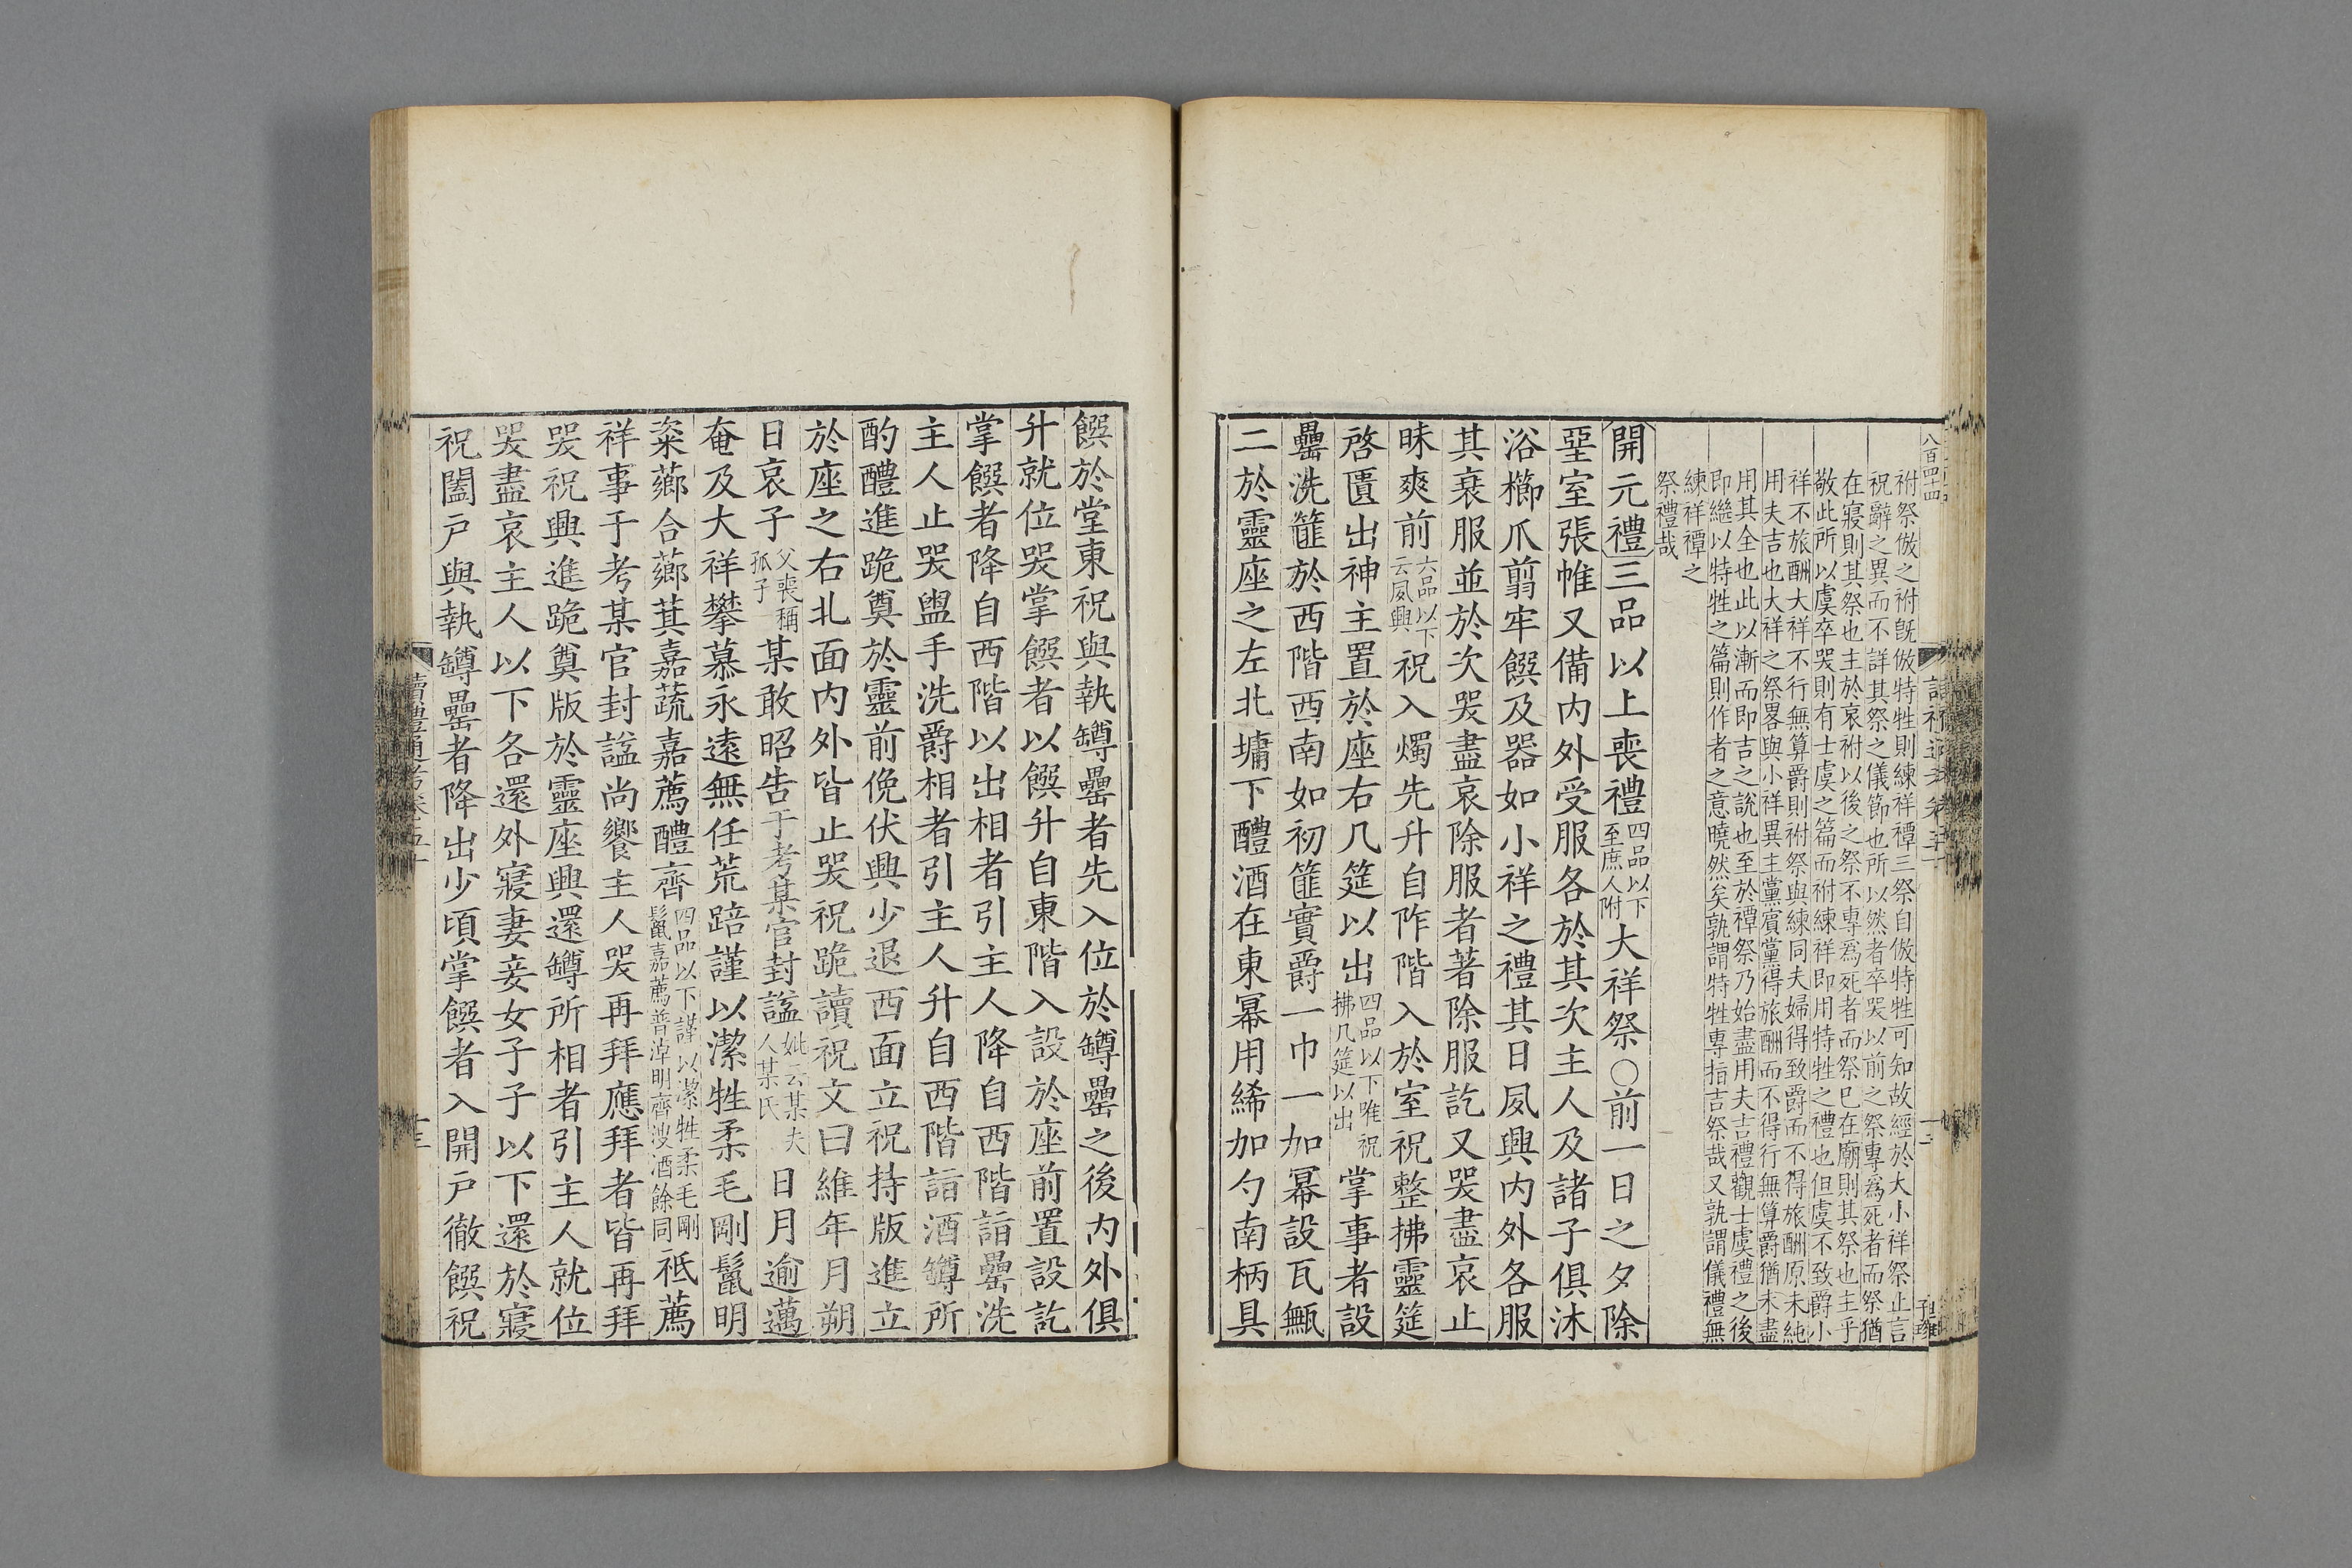 八百四十四
祔祭倣之祔旣倣特牲則練祥禫三祭自倣特牲可知故經於大小祥祭止言
祝辭之異而不詳其祭之儀節也所以然者卒哭以前之祭專爲死者而祭猶
在寢則其祭也主於哀祔以後之祭不專爲死者而祭已在廟則其祭也主乎
敬此所以虞卒哭則有士虞之篇而祔練祥即用特牲之禮也但虞不致爵小
祥不旅酬大祥不行無算爵則祔祭與練同夫婦得致爵而不得旅酬原未純
用夫吉也大祥之祭畧與小祥異主黨賔黨得旅酬而不得行無算爵猶未盡
用其全也此以漸而即吉之說也至於禫祭乃始盡用夫吉禮觀士虞禮之後
即繼以特牲之篇則作者之意曉然矣孰謂特牲專指吉祭哉又孰謂儀禮無
練祥禫之
祭禮哉
開元禮三品以上喪禮四品以下至庶人附大祥祭○前一日之夕除
堊室張帷又備内外受服各於其次主人及諸子俱沐
浴櫛爪翦牢饌及器如小祥之禮其日夙興内外各服
其衰服並於次哭盡哀除服者著除服訖又哭盡哀止
昧爽前六品以下云夙興祝入燭先升自阼階入於室祝整拂靈筵
啓匱出神主置於座右几筵以出四品以下唯祝拂几筵以出掌事者設
罍洗篚於西階西南如初篚實爵一巾一加冪設瓦甒
二於靈座之左北墉下醴酒在東冪用綌加勺南柄具
饌於堂東祝與執罇罍者先入位於罇罍之後内外俱
升就位哭掌饌者以饌升自東階入設於座前置設訖
掌饌者降自西階以出相者引主人降自西階詣罍洗
主人止哭盥手洗爵相者引主人升自西階詣酒罇所
酌醴進跪奠於靈前俛伏興少退西面立祝持版進立
於座之右北面内外皆止哭祝跪讀祝文曰維年月朔
日哀子父喪稱孤子某敢昭告于考某官封諡妣云某夫人某氏日月逾邁
奄及大祥攀慕永遠無任荒踣謹以潔牲柔毛剛鬣明
粢薌合薌萁嘉蔬嘉薦醴齊四品以下謹以潔牲柔毛剛鬣嘉薦普淖明齊溲酒餘同祗薦
祥事于考某官封諡尚饗主人哭再拜應拜者皆再拜
哭祝興進跪奠版於靈座興還罇所相者引主人就位
哭盡哀主人以下各還外寢妻妾女子子以下還於寢
祝闔戸與執罇罍者降出少頃掌饌者入開戸徹饌祝
讀禮通考卷五十
十三